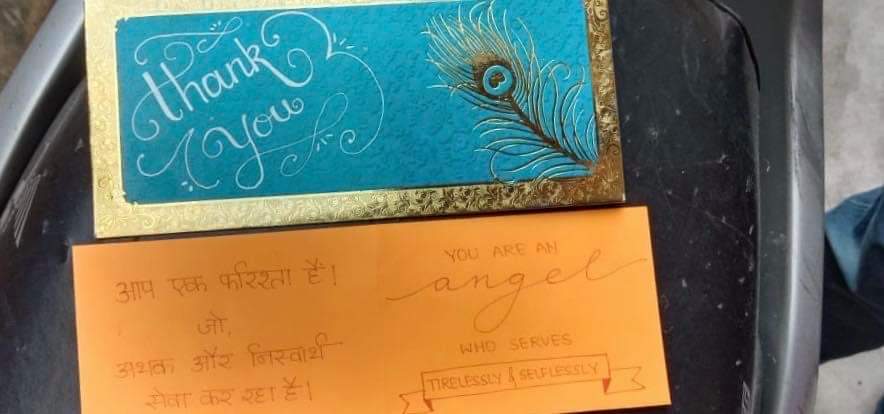 thank
you
आप एक फरिश्ता हैं!
जो,
अथक और निस्वार्थ
सेवा कर रहा है।
YOU ARE AN
angel
WHO SERVES
TIRELESSLY & SELFLESSLY